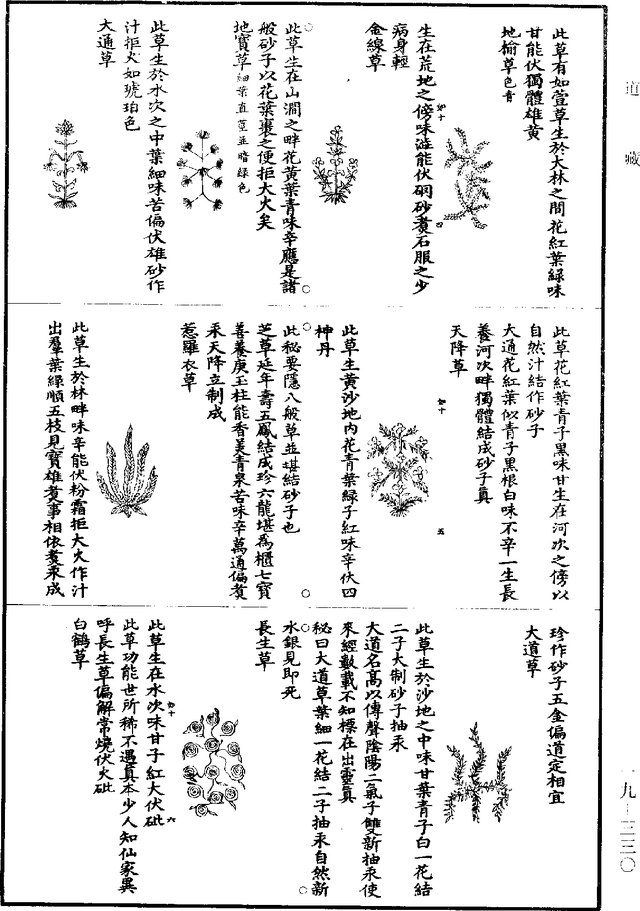 道藏
此草有如萱草生於大林之間花紅葉綠味
甘能伏獨體雄黃
地榆草色青
生在荒地之傍味澁能伏硇砂煑石服之少
病身輕
金線草
此草生在山澗之畔花黃葉青味辛應是諸
般砂子以花葉裹之便拒大火矣
地寶草細葉直莖並暗綠色
此草生於水次之中葉細味苦偏伏雄砂作
汁拒火如琥珀色
大通草
如十
四
此草花紅葉青子黑味甘生在河次之傍以
自然汁結作砂子
大通花紅葉似青子黑根白味不辛一生長
養河次畔獨體結成砂子真
天降草
此草生黃沙地内花青葉綠子紅味辛伏四
神丹
此秘要隱八般草並堪結砂子也
芝草延年壽五鳳結成珍六龍堪為櫃七寶
善養庚玉柱能香美青泉苦味辛萬通偏煑
汞天降立制成
惹羅衣草
此草生於林畔味辛能伏粉霜拒大火作汁
出羣葉綠順五枝見寶雄煑事相依煑汞成
如十
五
珍作砂子五金偏道定相宜
大道草
此草生於沙地之中味甘葉青子白一花結
二子大制砂子抽汞
大道名高以傳聲陰陽二氣子雙新抽汞使
來經數載不知標在出靈真
秘曰大道草葉細一花結二子抽汞自然新
水銀見即死
長生草
此草生在水次味甘子紅大伏砒
此草功能世所稀不遇真本少人知仙家異
呼長生草偏解常燒伏火砒
白鶴草
如十
六
一九—三三〇